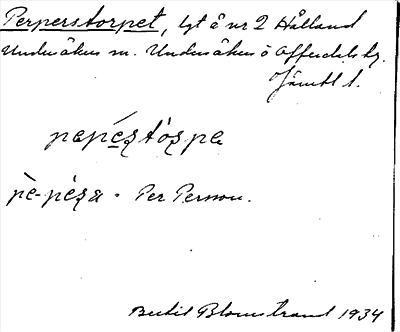 Perperstorpet, lgt å nr 2 Hålland
Undersåkers sn. Undersåkers o Offerdals tg.
Jämtl l.
pepéstórpe
pè-pésa · Per Persson.
Bertil Blomstrand 1934